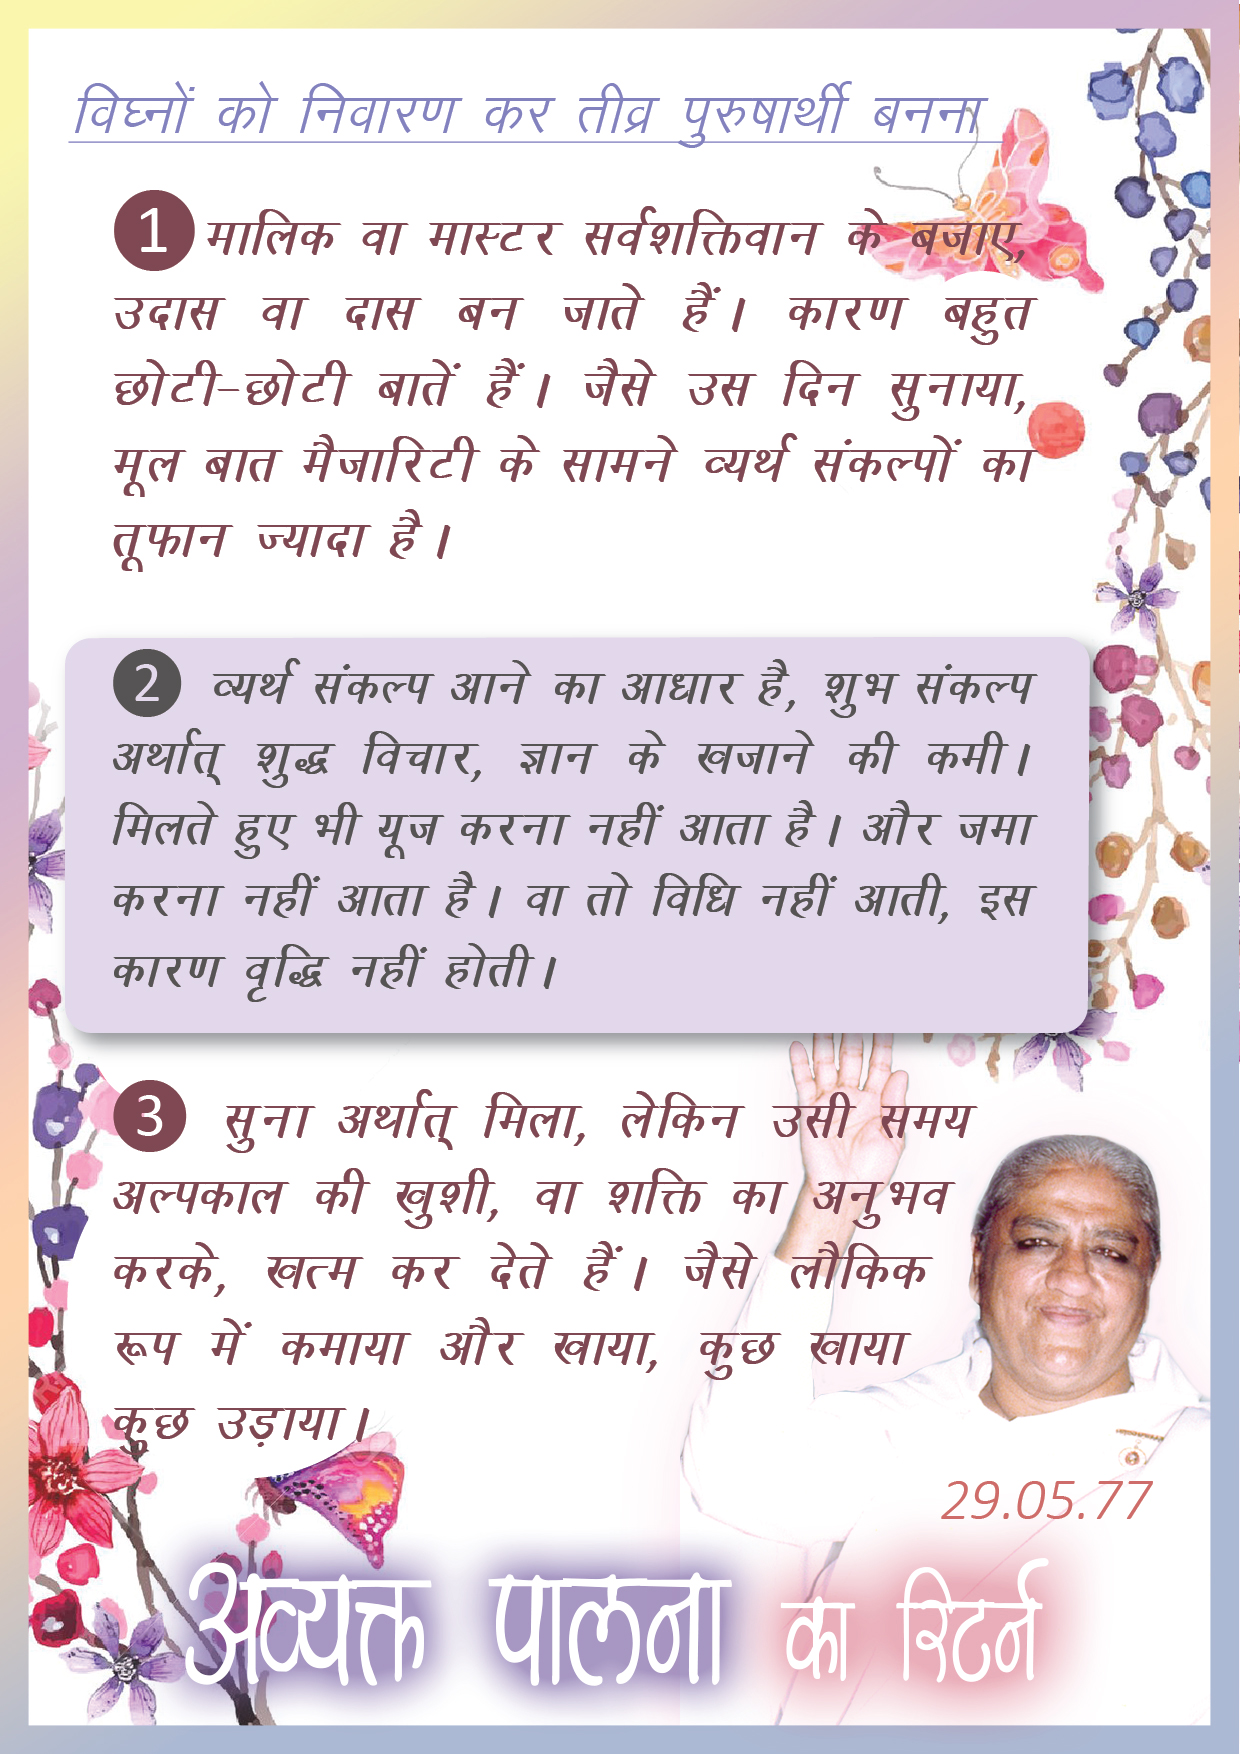 विघ्नों को निवारण कर तीव्र पुरुषार्थी बनना
1 मालिक वा मास्टर सर्वशक्तिवान के बजाए,
उदास वा दास बन जाते हैं। कारण बहुत
छोटी-छोटी बातें हैं। जैसे उस दिन सुनाया,
मूल बात मैजारिटी के सामने व्यर्थ संकल्पों का
तूफान ज्यादा है।
2 व्यर्थ संकल्प आने का आधार है, शुभ संकल्प
अर्थात् शुद्ध विचार, ज्ञान के खजाने की कमी।
मिलते हुए भी यूज करना नहीं आता है। और जमा
करना नहीं आता है। वा तो विधि नहीं आती, इस
कारण वृद्धि नहीं होती।
3 सुना अर्थात् मिला, लेकिन उसी समय
अल्पकाल की खुशी, वा शक्ति का अनुभव
करके, खत्म कर देते हैं। जैसे लौकिक
रूप में कमाया और खाया, कुछ खाया
कुछ उड़ाया।
29.05.77
अव्यक्त पालना का रिटर्न